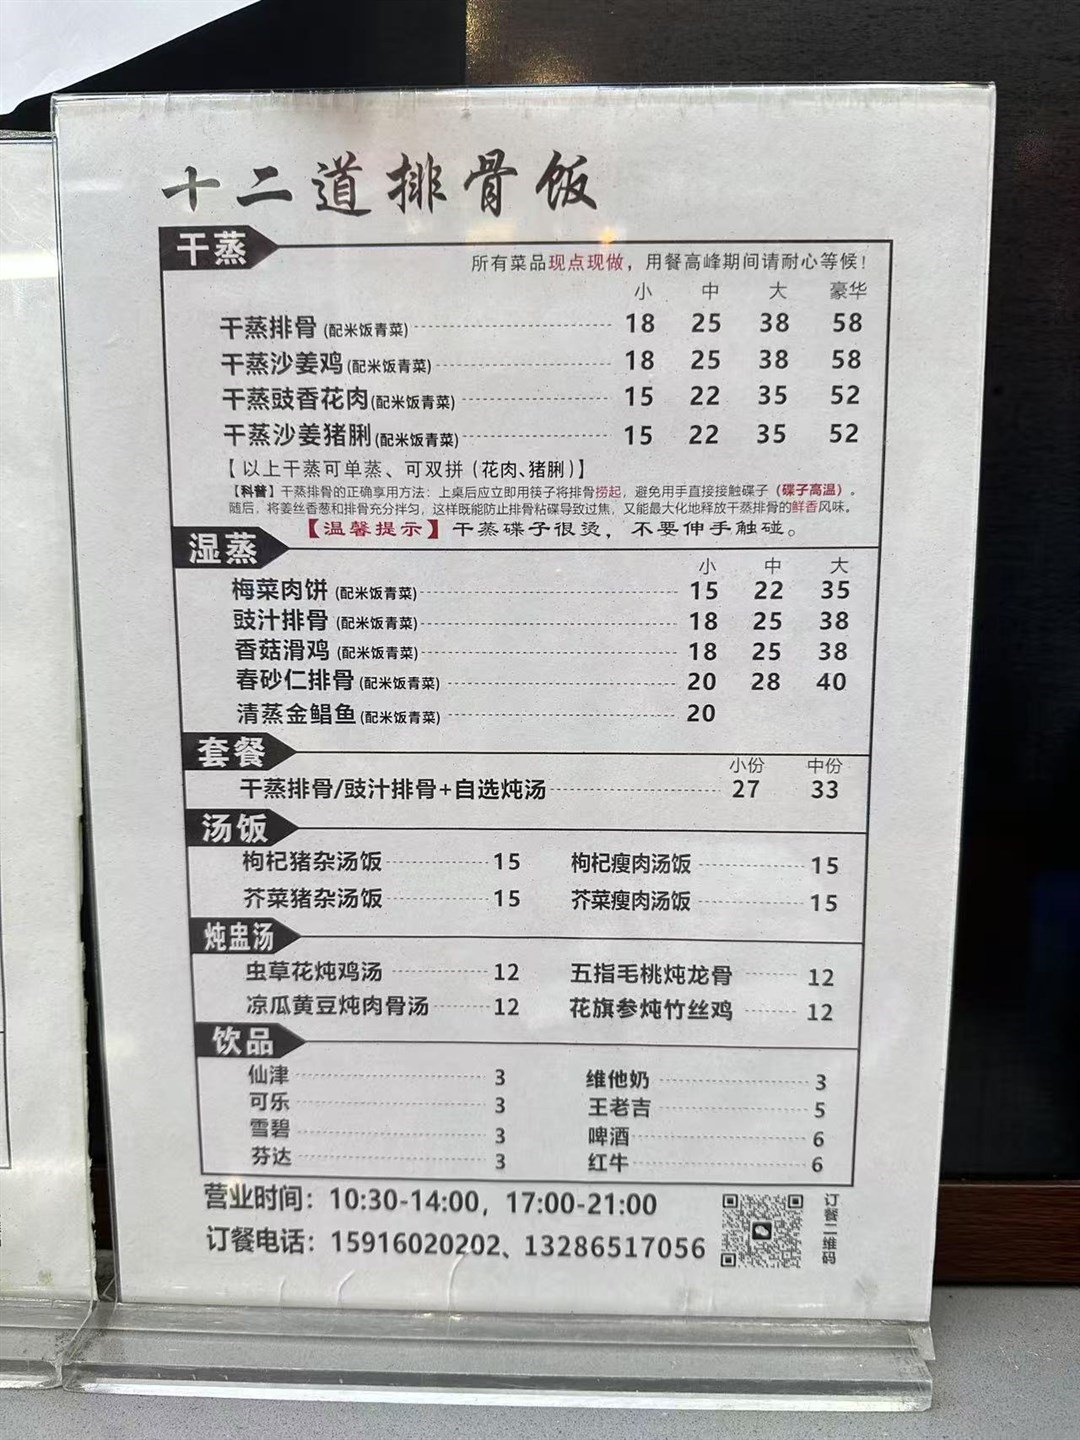 十二道排骨饭
干蒸
所有菜品现点现做，用餐高峰期间请耐心等候！
小 中 大 豪华
干蒸排骨(配米饭青菜) 18 25 38 58
干蒸沙姜鸡(配米饭青菜) 18 25 38 58
干蒸豉香花肉(配米饭青菜) 15 22 35 52
干蒸沙姜猪脷(配米饭青菜) 15 22 35 52
【以上干蒸可单蒸、可双拼（花肉、猪脷）】
【科普】干蒸排骨的正确享用方法：上桌后应立即用筷子将排骨捞起，避免用手直接接触碟子（碟子高温）。
随后，将姜丝香葱和排骨充分拌匀，这样既能防止排骨粘碟导致过焦，又能最大化地释放干蒸排骨的鲜香风味。
【温馨提示】干蒸碟子很烫，不要伸手触碰。
湿蒸
小 中 大
梅菜肉饼(配米饭青菜) 15 22 35
豉汁排骨(配米饭青菜) 18 25 38
香菇滑鸡(配米饭青菜) 18 25 38
春砂仁排骨(配米饭青菜) 20 28 40
清蒸金鲳鱼(配米饭青菜) 20
套餐
小份 中份
干蒸排骨/豉汁排骨+自选炖汤 27 33
汤饭
枸杞猪杂汤饭 15 枸杞瘦肉汤饭 15
芥菜猪杂汤饭 15 芥菜瘦肉汤饭 15
炖盅汤
虫草花炖鸡汤 12 五指毛桃炖龙骨 12
凉瓜黄豆炖肉骨汤 12 花旗参炖竹丝鸡 12
饮品
仙津 3 维他奶 3
可乐 3 王老吉 5
雪碧 3 啤酒 6
芬达 3 红牛 6
营业时间：10:30-14:00，17:00-21:00
订餐电话：15916020202、13286517056
订餐二维码